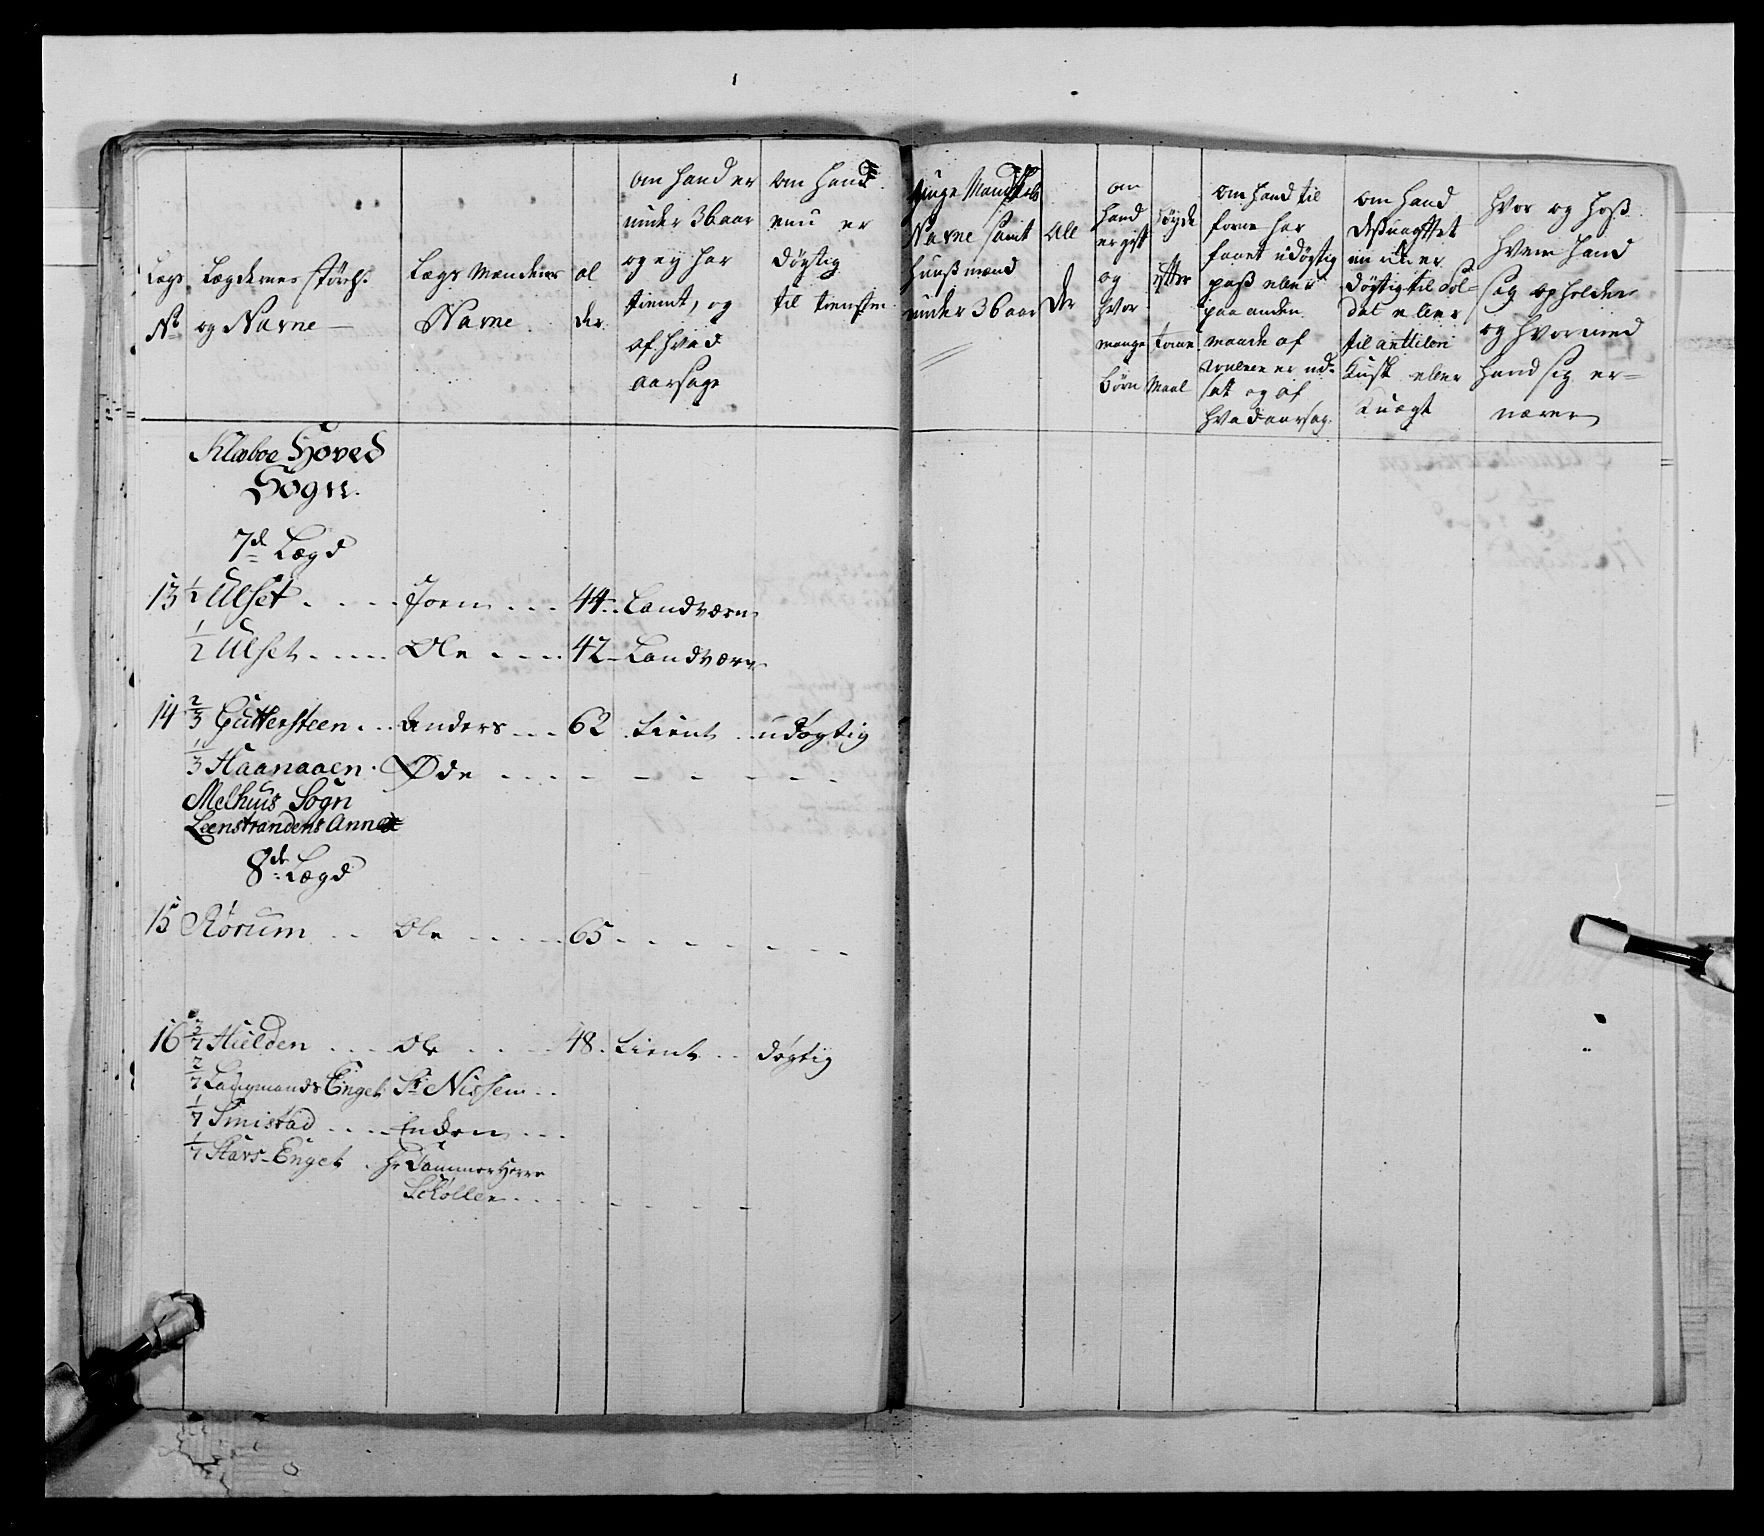 Lægs
No
Lægdernes størels:
og Navne
Lægs Mændenes
Navne
al
der
om hand er
under 36 aar
og ey har
tient, og
af hvad
aarsage
om hand
enu er
døgtig
til tienesten
Unge Mandskabs
Navne samt
Huusmænd
under 36 aar
All
der
om
hand
er gift
og
hvor
mange
børn
Høyde
efter
tomme
Maal
om hand til
forne har
faaet udøgtig
pass eller
paa anden
maade af
er ud-
sat og af
hvad aarsag.
om hand
desuagtet
en nu er
døgtig til Sol-
dat eller
til artilleri
Kusk eller
Knægt
hvor og hoss
hvem hand
sig opholder
og hvormed
hand sig er-
nærer
Klæboe Hoved
Sogn.
7de Lægd
13 1/2 Ulset . . . . Joen . . . 44 . . Landværn
1/2 Ulset . . . . Ole . . . . 42 - Landværn
14 2/3 Guttersteen . . Anders . . . 62 . tient . . udøgtig
1/3 Haanaaen . Øde . . . - - - - - -
Melhuus Sogn
Leenstrandens Annex
8de Lægd
15 Rørum . . Ole . . . . . 65 . - - - - - -
16 3/7 Hielden . . . . Ole . . . . 48 . tient . . døgtig
2/7 Laugmands Enget Sr Nissen . .
1/7 Smistad . . . . Enken . . .
1/7 Stavs-Enget . Hr Cammer Herre
Schøller . . . . - - -